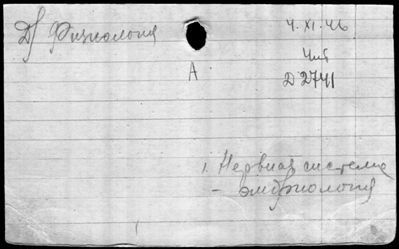 Физиология
4.XI.46
Чит
А
Д 2741
1. Нервная система
- эмбриология